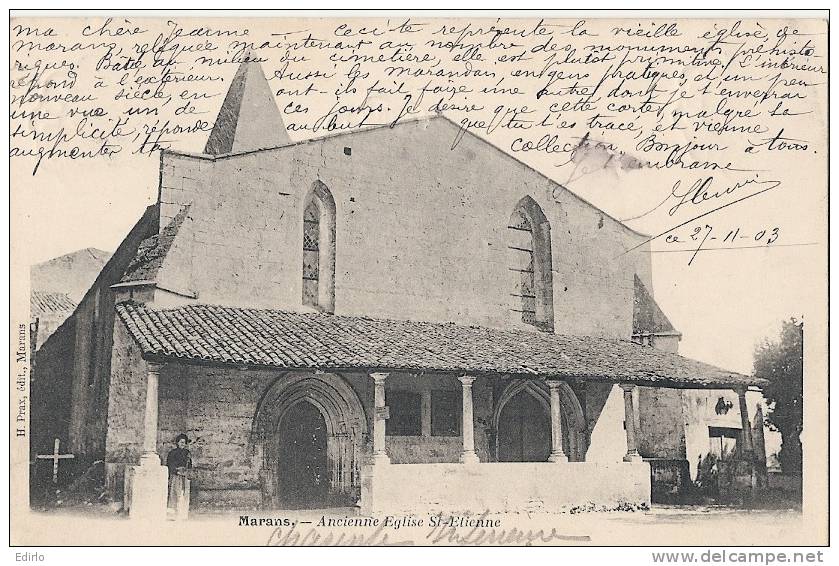 ma chère Jeanne — Ceci te représente la vieille église de
marans, reléguée maintenant au nombre des monuments préhisto
riques. Bâtie au milieu du cimetière, elle est plutôt primitive. L'intérieur
répond à l'extérieur. Aussi les marandais, en gens pratiques, et un peu
nouveau siècle, en ont-ils fait faire une autre dont je t'enverrai
une vue un de ces jours. Je désire que cette carte, malgré sa
simplicité, réponde au but que tu t'es tracé, et vienne
augmenter ta collection. Bonjour à tous.
Je t'embrasse
ce 27-11-03
H. Prax, édit., Marans
Marans. — Ancienne Eglise St-Etienne
Charente Inférieure
Edirlo
http://www.delcampe.net